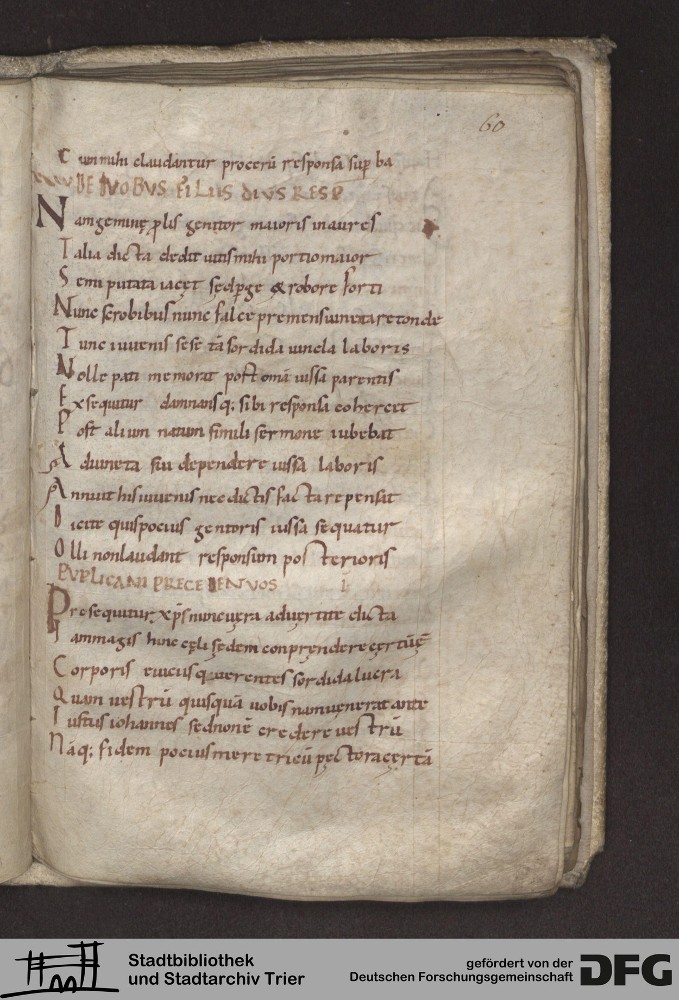 60
Cum mihi claudantur procerū responsa sup ba
DE DVOBVS FILIIS DIVS RESP
Nam geminę plis genitor maioris inaures
Talia dicta dedit uitis mihi portio maior
Semi putata iacęt sed pge & robore forti
Nunc scrobibus nunc falce premens iuneta retonde
Tunc iuuenis sese tā sordida uincla laboris
Nolle pati memorat post omā iussa parentis
Exsequitur damnansq; sibi responsa cohercet
Post alium natum simili sermone iubebat
Ad uineta sui dependere iussa laboris
Annuit his iuuenis nec dictis facta repensat
Dicite quis pocius genitoris iussa sequatur
Olli non laudant responsum posterioris
PVPLICANI PRECEDENT VOS
Prosequitur xp̄s nunc uera aduertite dicta
Iam magis hunc cęli sedem conprendere certū ē
Corporis euicus quęrentes sordida lucra
Quam uestrū quisquā uobis nam uenerat ante
Iustus iohannes sed non ē credere uestrū
Nāq; fidem pocius meretricū pectora certā
Stadtbibliothek
und Stadtarchiv Trier
gefördert von der
Deutschen Forschungsgemeinschaft
DFG